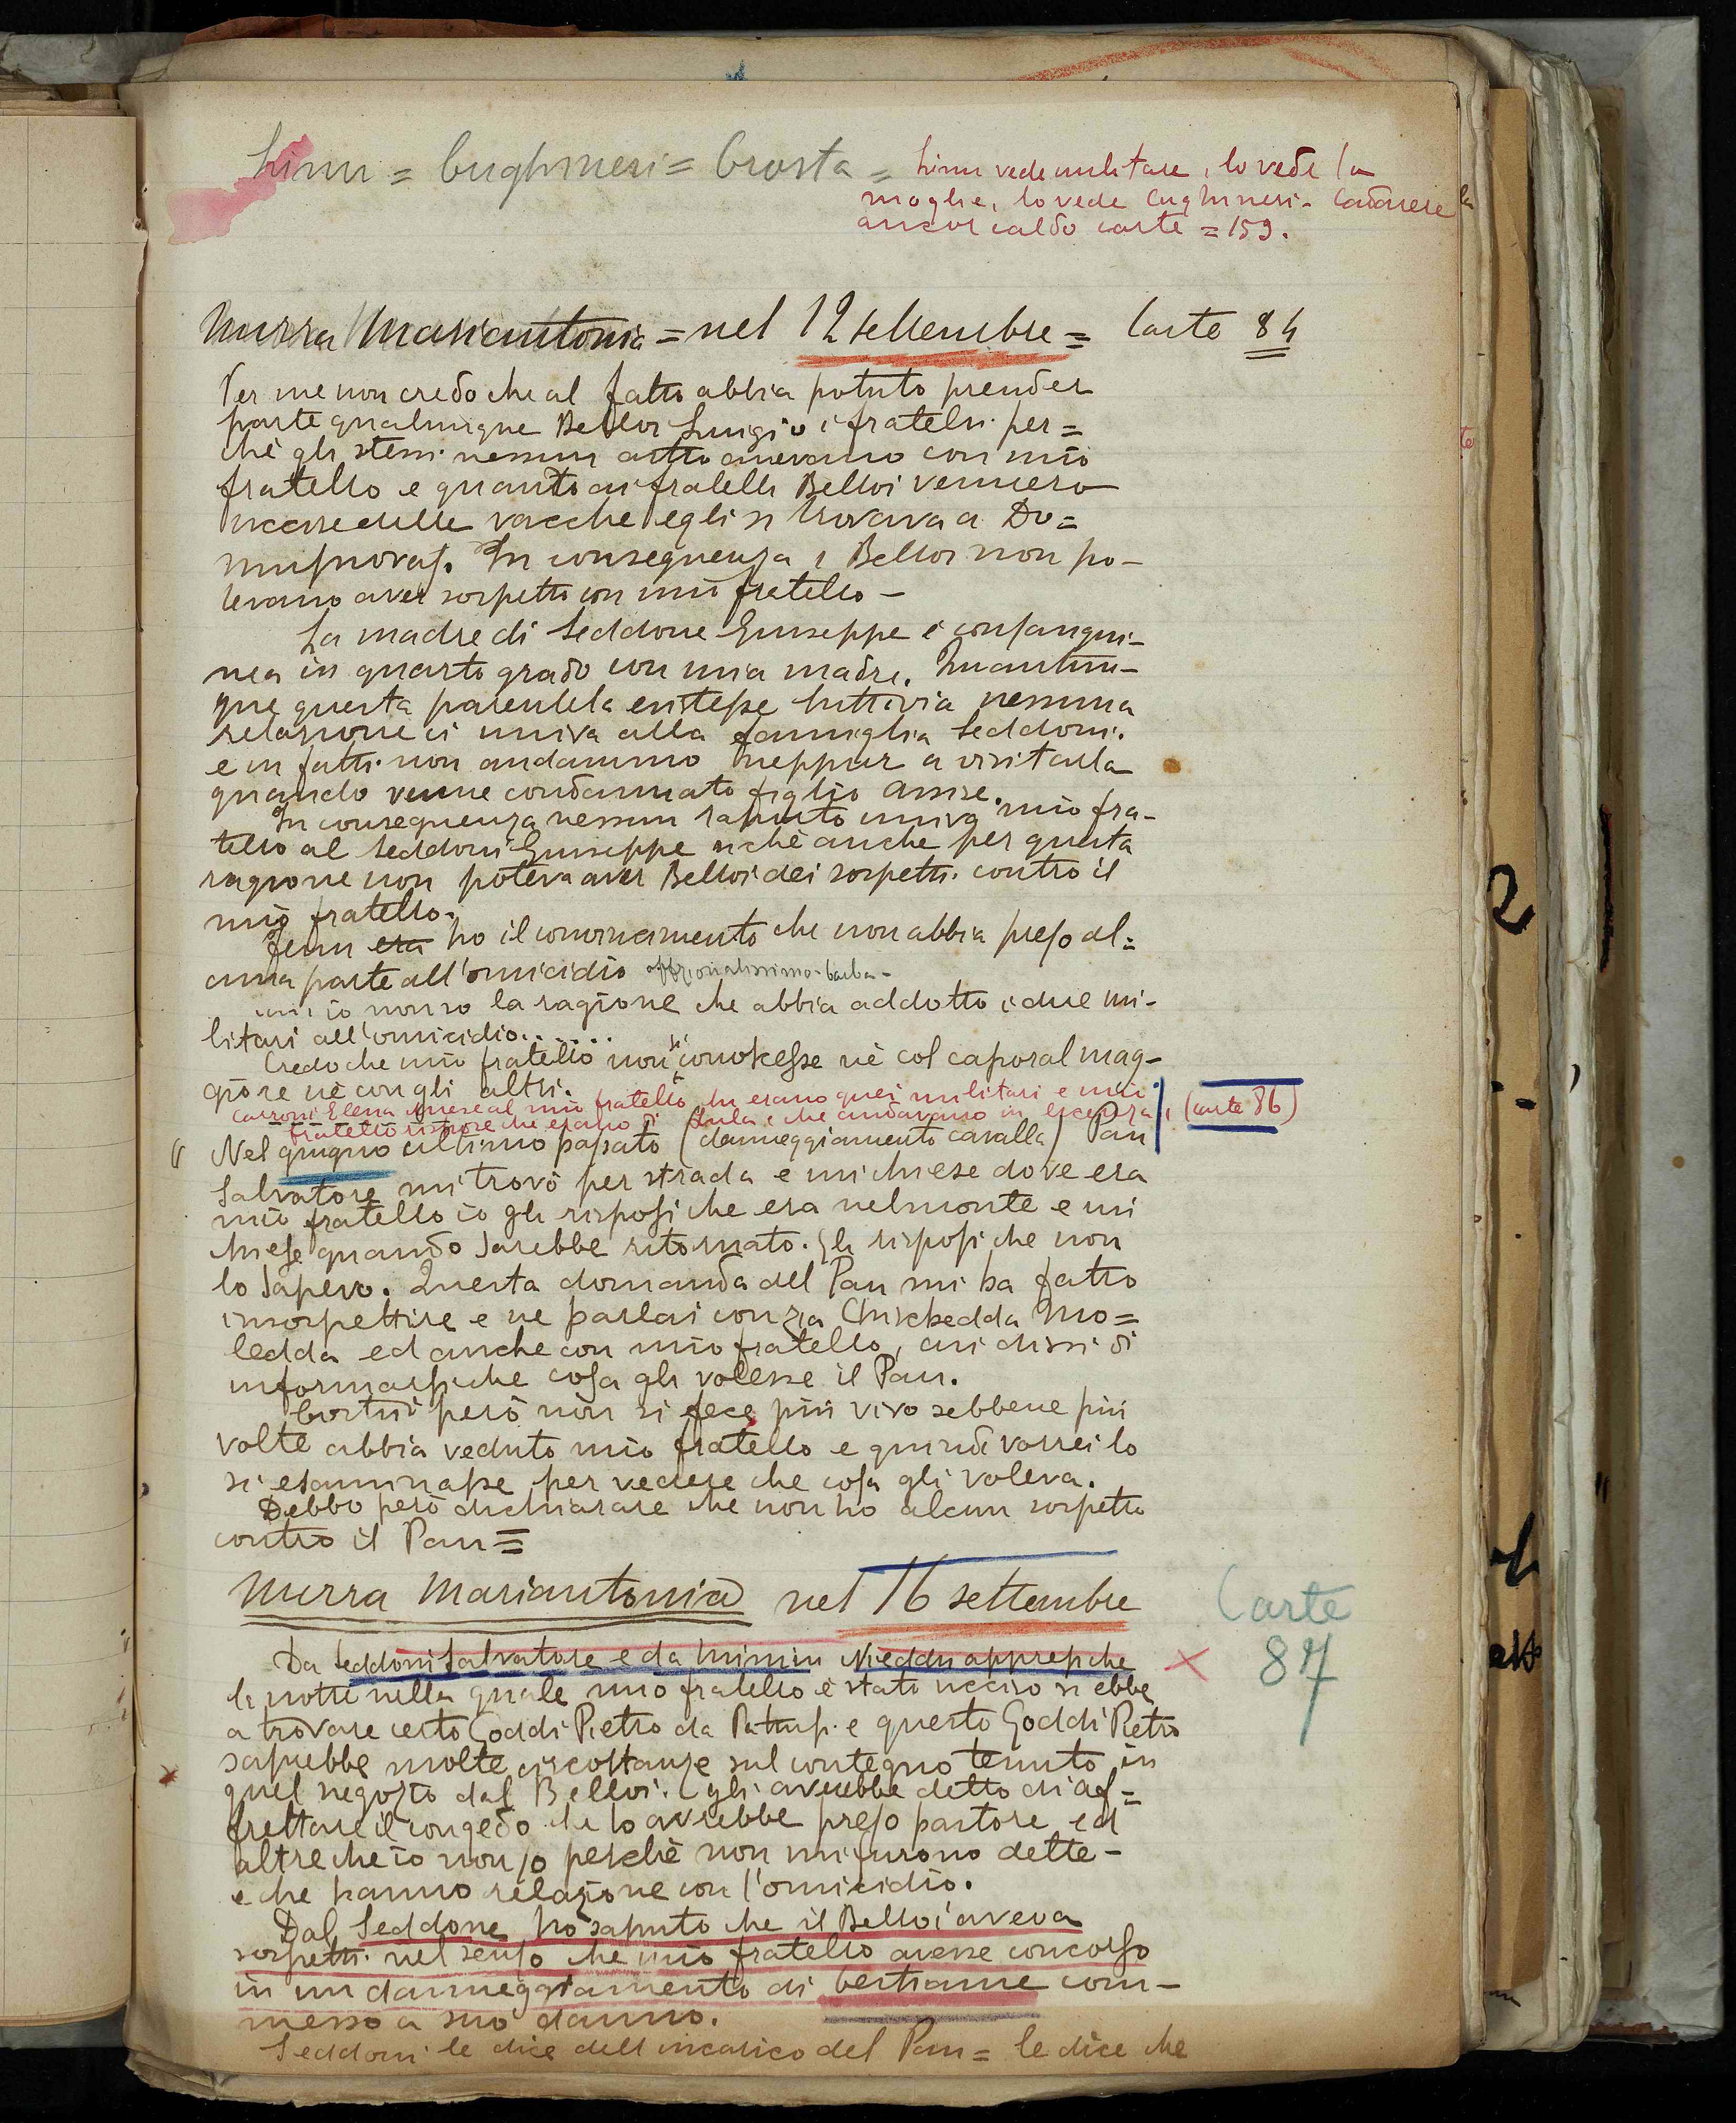 = Cughineri = Crosta = Linu vede militare, lo vede la
moglie, lo vede Cughineri. Cadavere
ancor caldo carte = 159.
Murra Mariantonia = nel 12 settembre = Carte 84
Per me non credo che al fatto abbia potuto prender
parte qualunque Belloi Luigi o i fratelli per=
chè gli stessi nessun astio avevano con mio
fratello e quanto ai fratelli Belloi vennero
uccise delle vacche egli si trovava a Do=
musnovas. In conseguenza i Belloi non po-
tevano aver sospetti con mio fratello -
La madre di Seddone Giuseppe è consangui-
nea in quarto grado con mia madre. Quantun-
que questa parentela esistesse tuttavia nessuna
relazione ci univa alla famiglia Seddoni.
e in fatti non andammo neppur a visitarla
quando venne condannato figlio assise.
In conseguenza nessun rapporto univa mio fra-
tello al Seddoni Giuseppe sichè anche per questa
ragione non poteva aver Belloi dei sospetti contro il
mio fratello.
era ho il convincimento che non abbia preso al=
cuna parte all'omicidio
io non so la ragione che abbia addotto i due mi-
litari all'omicidio......
Credo che mio fratello non si conoscesse nè col caporal mag-
giore nè con gli altri.
Elena chiese al mio fratello chi erano quei militari e mio
fratello rispose che erano di e che andavano in licenza, (carte 86)
" Nel giugno ultimo passato (danneggiamento cavalla) Pau
Salvatore mi trovò per strada e mi chiese dove era
mio fratello io gli risposi che era nel monte e mi
chiese quando sarebbe ritornato. Gli risposi che non
lo sapevo. Questa domanda del Pau mi ha fatto
insospettire e ne parlai con zia Chischedda Mo=
ledda ed anche con mio fratello, cui dissi di
informarsi che cosa gli volesse il Pau.
Costui però non si fece più vivo sebbene più
volte abbia veduto mio fratello e quindi vorrei lo
si esaminasse per vedere che cosa gli voleva.
Debbo però dichiarare che non ho alcun sospetto
contro il Pau =
Murra Mariantonia nel 16 settembre Carte
87
Da Seddoni Salvatore e da Mimiu Nieddu appresi che
la notte nella quale mio fratello è stato ucciso si ebbe
a trovare certo Goddi Pietro da e questo Goddi Pietro
saprebbe molte circostanze sul contegno tenuto in
quel negozio dal Belloi. Egli avrebbe detto di af=
frettare il congedo che lo avrebbe preso pastore ed
altre che io non so perchè non mi furono dette -
e che hanno relazione con l'omicidio.
Dal Seddone ho saputo che il Belloi aveva
sospetti nel senso che mio fratello avesse concorso
in un danneggiamento di bestiame com-
messo a suo danno.
Seddoni le dice dell'incarico del Pau = le dice che